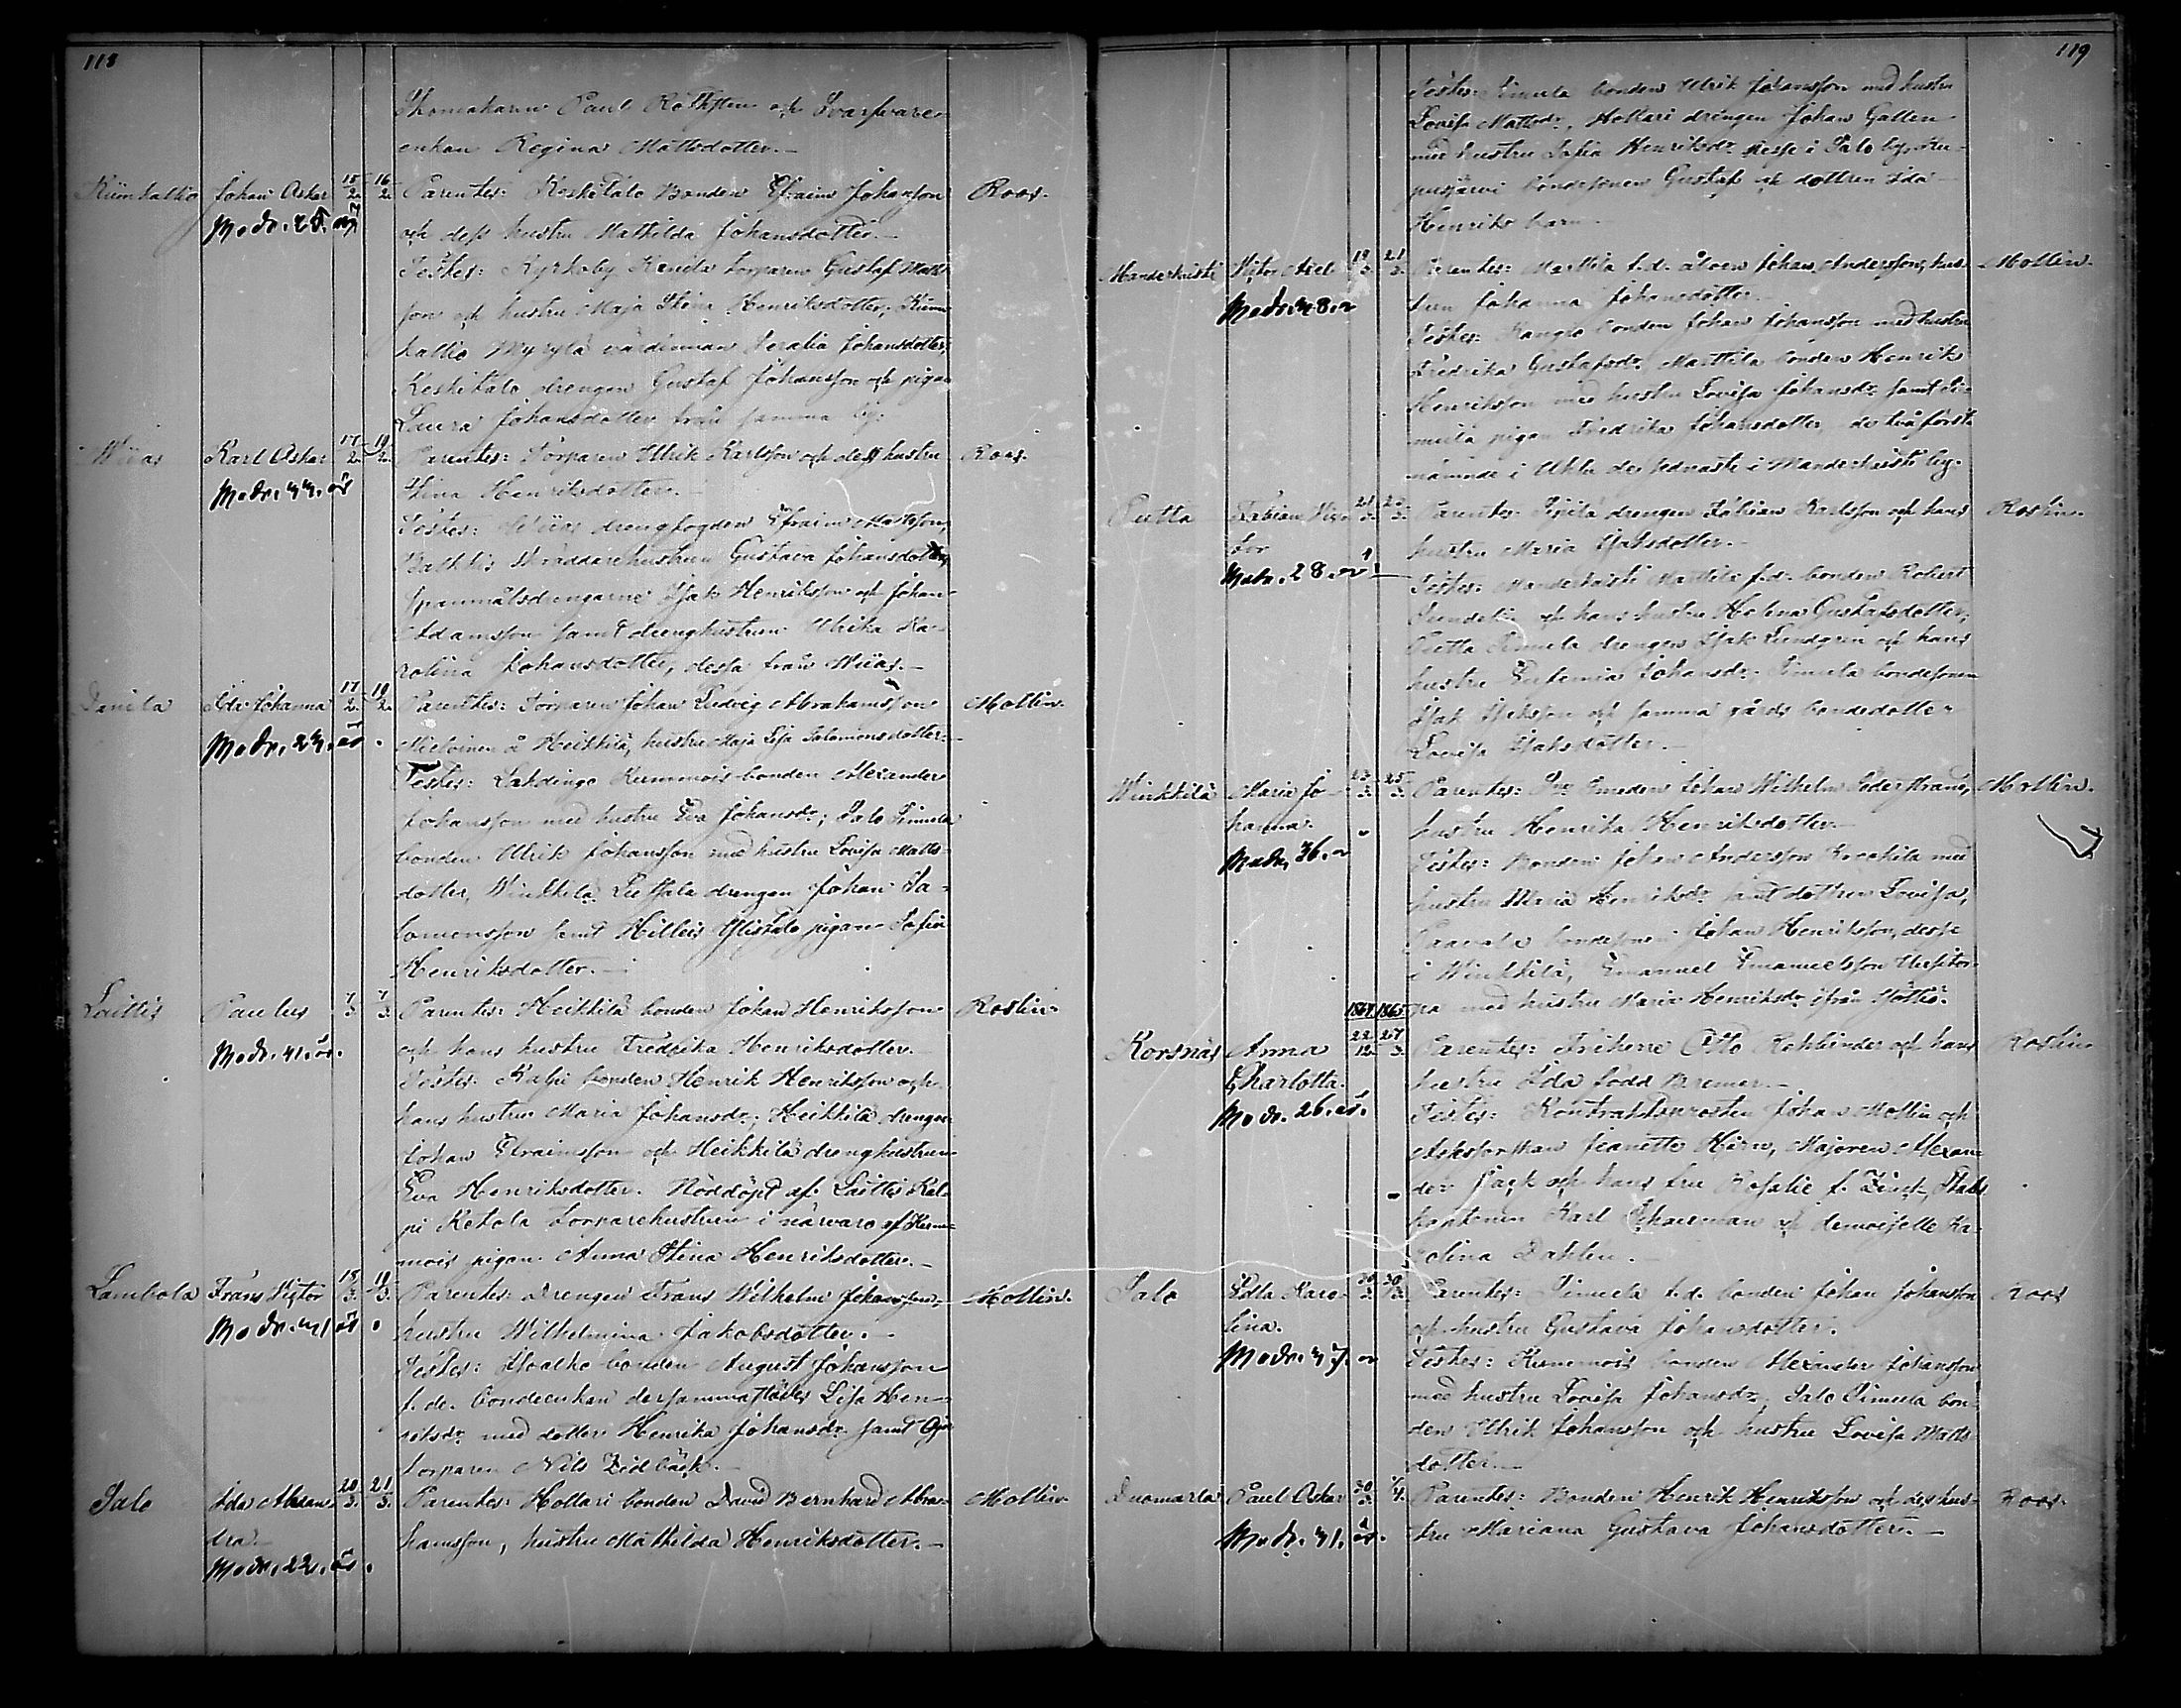 118
Skomakaren Paul Rothsten och Svarfvare-
enkan Regina Mattsdotter.
Kiimkallio Johan Oskar 15/2 16/2 Parentes: Keskitalo Bonden Efraim Johansson Roos.
Modr. 25. år och dess hustru Mathilda Johansdotter.
Testes: Kyrkoby torparen Gustaf Matts-
son och hustru Maja Stina Henriksdotter, Kiim-
kallio Myrylä värdinnan Johansdotter,
Keskitalo drengen Gustaf Johansson och pigan
Laura Johansdotter från samma by.
Wiias Karl Oskar 17/2 19/2 Parentes: Torparen Ulrik Karlsson och dess hustru Roos.
Modr. 44. år Stina Henriksdotter.
Testes: Wiias drengfogden Efraim Mattsson,
skräddarehustrun Gustava Johansdotter,
spannmålsdrengarne Isak Henriksson och Johan
Adamsson samt drenghustrun Ulrika Ka-
rolina Johansdotter, dessa från Wiias.
Ida Johanna 17/2 19/2 Parentes: Torparen Johan Ludvig Abrahamsson Mollin.
Modr. 24. år. å Heikkilä, hustru Maja Lisa Salomonsdotter.
Testes: Lahdinga Kummois bonden Alexander
Johansson med hustru Eva Johansdr; Salo Simula
bonden Ulrik Johansson med hustru Lovisa Matts-
dotter, Winkkilä drengen Johan Sa-
lomonsson samt Hilleis Ylistalo pigan Sofia
Henriksdotter.
Laittis Paulus 7/3 7/3 Parentes: Heikkilä bonden Johan Henriksson Roslin.
Modr. 41. år. och hans hustru Fredrika Henriksdotter.
Testes: bonden Henrik Henriksson och
hans hustru Maria Johansdr; Heikkilä drengen
Johan Efraimsson och Heikkilä drenghustrun
Eva Henriksdotter. Nöddöpt af Laittis Kal-
pi Ketola torparehustrun i närvaro af Kum-
mois pigan Anna Stina Henriksdotter.
Lambola Frans Victor 18/3 19/3 Parentes: Drengen Frans Wilhelm Johansson, Mollin.
Modr. 41 år. hustru Wilhelmina Jakobsdotter.
Testes: bonden August Johansson
f.d. bondeenkan dersammastädes Lisa Hen-
riksdr med dotter Henrika Johansdr samt
torparen Nils Lidbäck.
Salo Ida Alexan- 20/3 21/3 Parentes: Hollari bonden David Bernhard Abra- Mollin
dra. hamsson, hustru Mathilda Henriksdotter.
Modr. 22. år.
119
Testes: Simula bonden Ulrik Johansson med hustru
Lovisa Mattsdr, Hollari drengen Johan Gallen
med hustru Sofia Henriksdr desse i Salo by, Ku-
pusjärvi bondesonen Gustaf och dottren Ida
Henriks barn.
Manderkuisti Victor Axel 19/3 21/3 Parentes: Marttila f.d. åboen Johan Andersson, hus- Mollin.
Modr. 48. år trun Johanna Johansdotter.
Testes: Kangra bonden Johan Johansson med hustru
Fredrika Gustafsdr Marttila bonden Henrik
Henriksson med hustru Lovisa Johansdr samt
pigan Fredrika Johansdotter, de två först-
nämnde i Uhla de sednaste i Manderkuisti by.
Putta Fabian Vic- 21/3 23/3 Parentes: Pipila drengen Fabian Karlsson och hans Roslin.
tor hustru Maria Isaksdotter.
Modr. 28. år Testes: Manderkuisti Marttila f.d. bonden Robert
och hans hustru Helena Gustafsdotter,
Putta Simula drengen Isak Lundgren och hans
hustru Eufemia Johansdr. Simula bondesonen
Isak Isaksson och samma gårds bondedotter
Lovisa Isaksdotter.
Winkkilä Maria Jo- 23/3 25/3 Parentes: Smeden Johan Wilhelm Söderstrand, Mollin.
hanna. hustru Henrika Henriksdotter.
Modr. 36. år Testes: Bonden Johan Andersson med
hustru Maria Henriksdr samt dottren Lovisa,
Paavola bondesonen Johan Henriksson, desse
i Winkkilä, Emanuel Emanuelsson
1864 1865 med hustru Maria Henriksdr ifrån
Korsnäs Anna 22/12 27/3 Parentes: Friherre Otto Rehbinder och hans Roslin
Charlotta. hustru Ida född Bremer.
Modr. 26. år. Testes: Kontraktsprosten Johan Mollin och
Assessorskan Jeanette Hjern, Majoren Alexan-
der och hans fru Rosalie f. Stabs
kaptenen Karl och demoiselle Ka-
rolina Dahlen.
Salo Edla Karo- 30/3 30/3 Parentes: Simula f.d. bonden Johan Johansson Roos
lina. och hustru Gustava Johansdotter.
Modr. 47. år Testes: Kummois bonden Alexander Johansson
med hustru Lovisa Johansdr, Salo Simula bon-
den Ulrik Johansson och hustru Lovisa Matts-
dotter.
Duomarla Paul Oskar 30/3 1/4 Parentes: Bonden Henrik Henriksson och dess hus- Roos.
Modr. 41. år. tru Mariana Gustava Johansdotter.